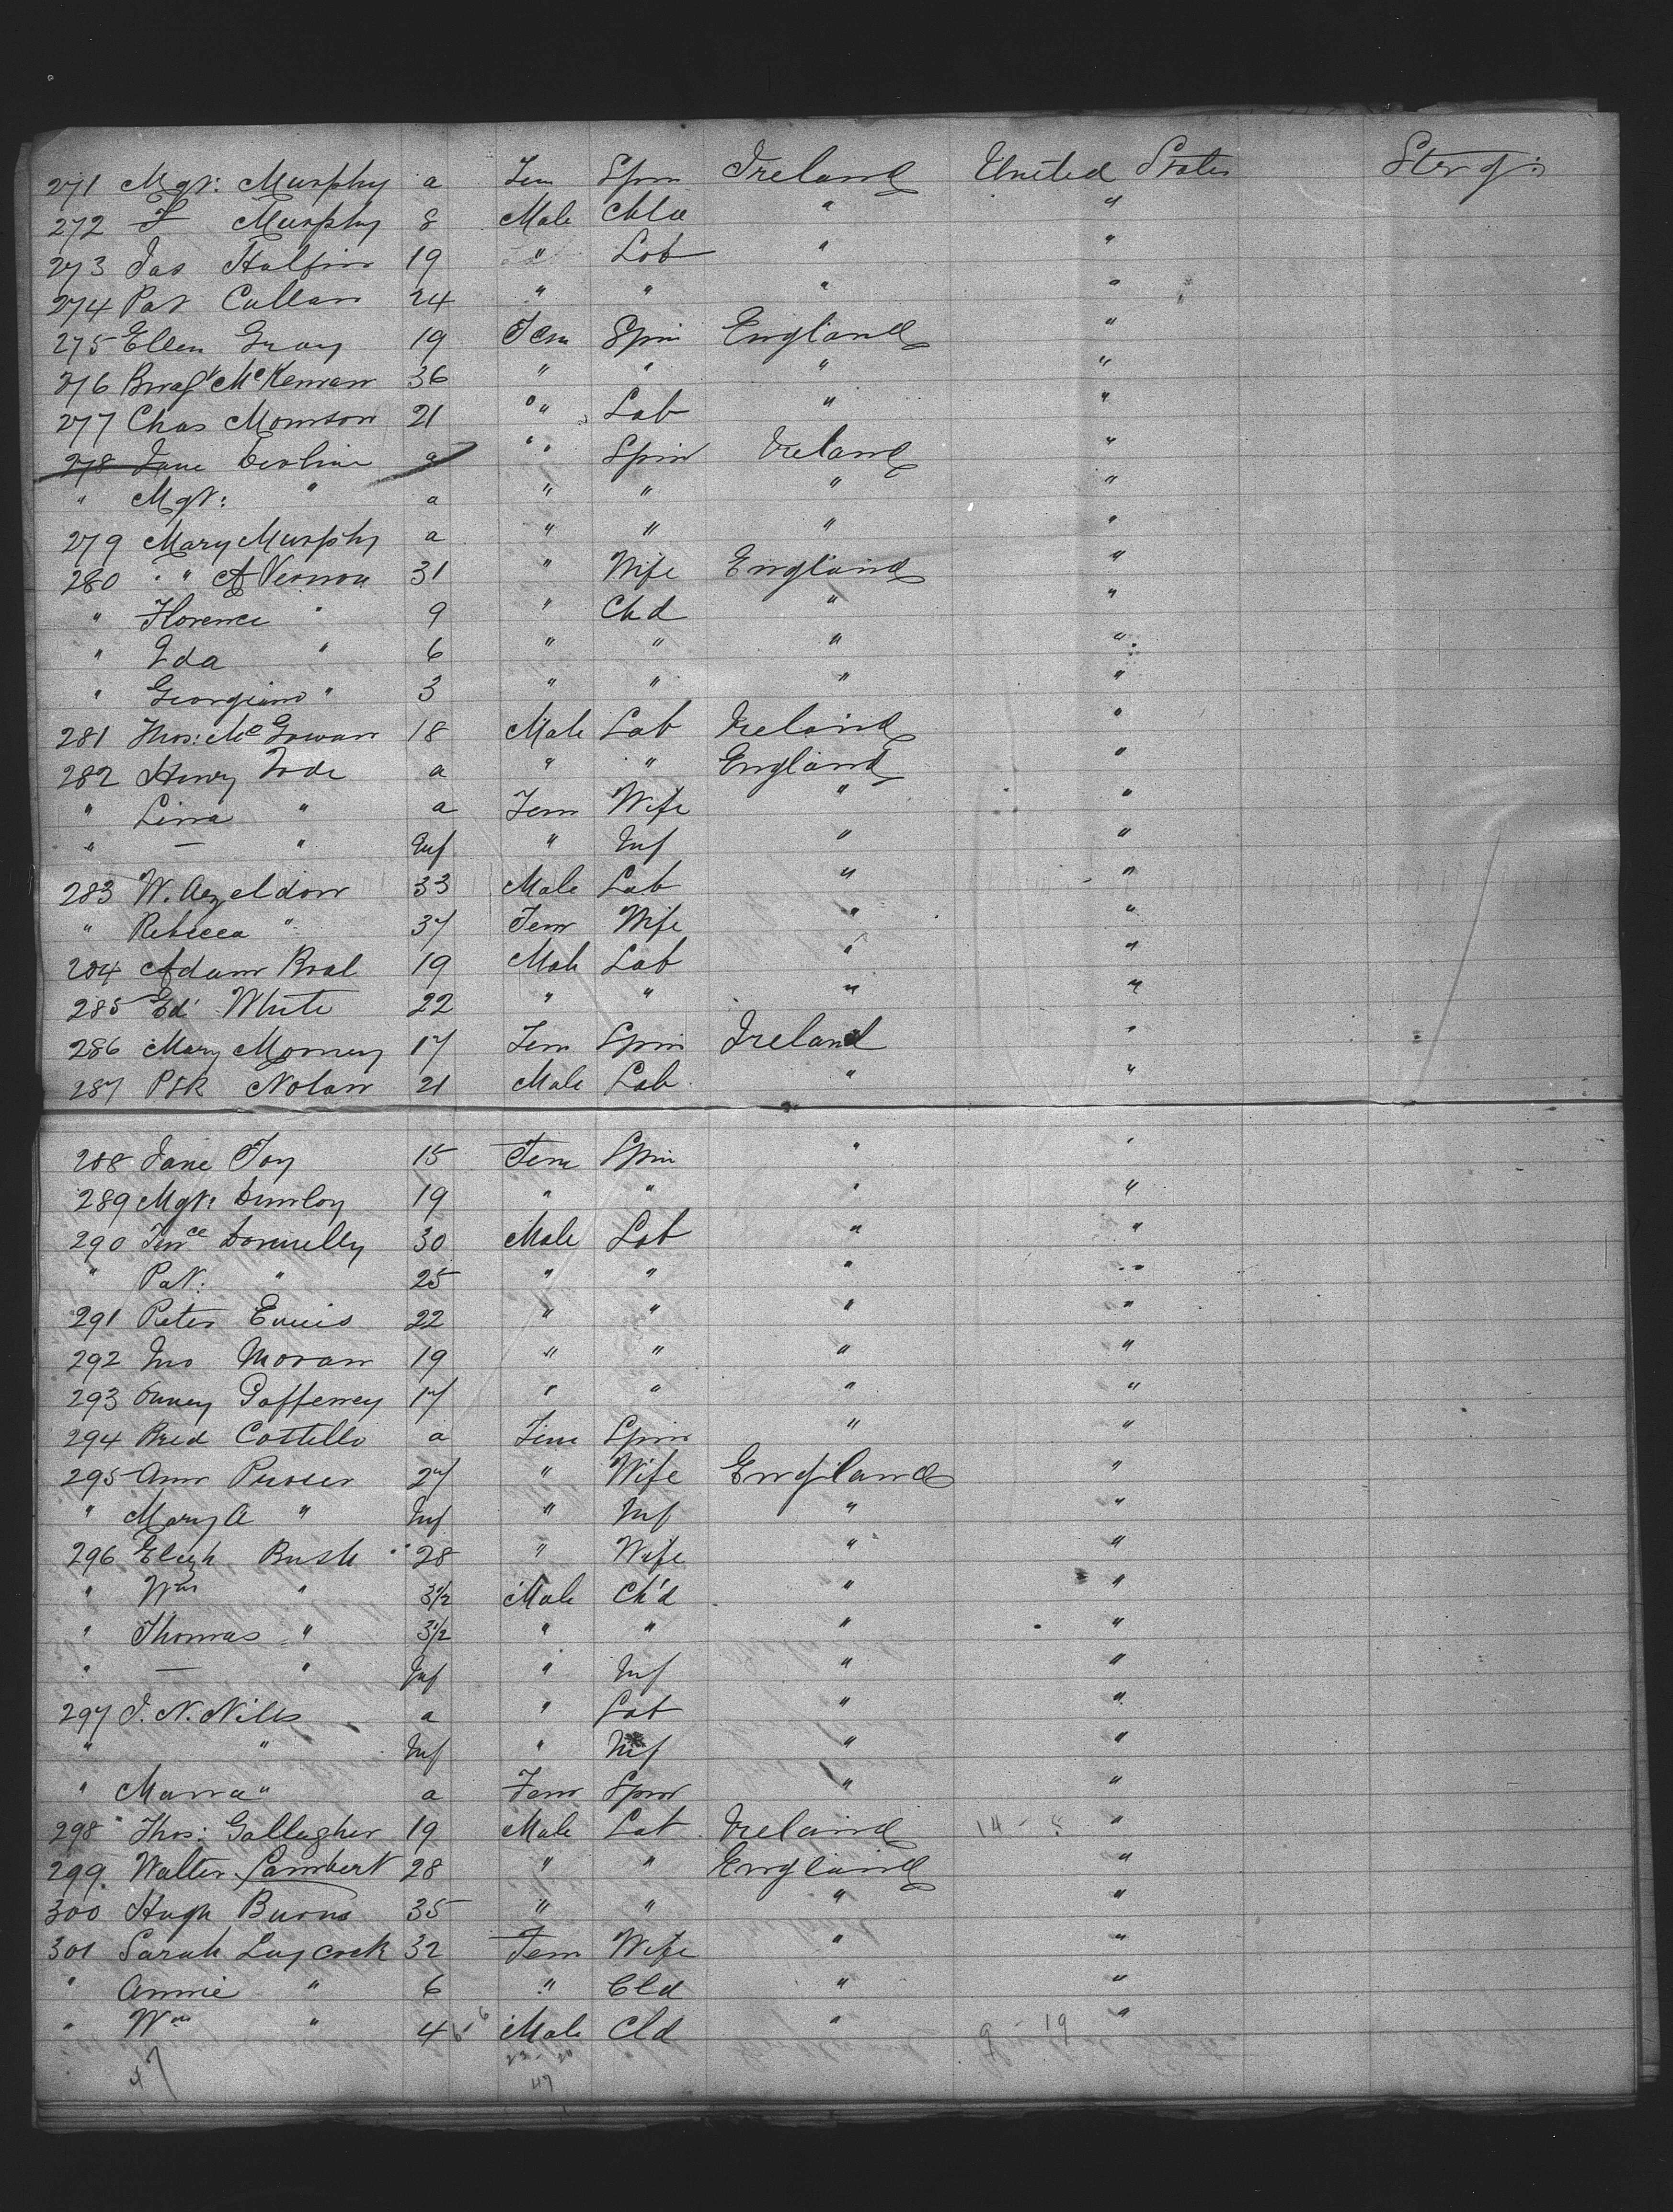 271 Mgt: Murphy a Fem Spin Ireland United States Sterg:
272 F Murphy 8 Male Chld " "
273 Jas Halfin 19 " Lab " "
274 Pat Callan 24 " " " "
275 Ellen Gray 19 Fem Spin England "
276 McKenran 36 " " " "
277 Chas Mornton 21 " Lab " "
278 Jane Devline a " Spin Ireland "
" Mgt: " a " " " "
279 Mary Murphy a " " " "
280 " A Vernon 31 " Wife England "
" Florence " 9 " Chd " "
" Ida " 6 " " " "
" Georgiana " 3 " " " "
281 Thos: McGowan 18 Male Lab Ireland "
282 Henry a " " England "
" Linna " a Fem Wife " "
" — " Inf " Inf " "
283 W. 33 Male Lab " "
" Rebecca " 37 Fem Wife " "
284 Adam Bral 19 Male Lab " "
285 Ed White 22 " " " "
286 Mary Morney 17 Fem Spin Ireland "
287 Ptk Nolan 21 Male Lab " "
288 Jane Foy 15 Fem Spin " "
289 Mgt: Dunloy 19 " " " "
290 Donnelly 30 Male Lab " "
" Pat: " 25 " " " "
291 Peter Ennis 22 " " " "
292 Jno Moran 19 " " " "
293 Gaffeney 17 " " " "
294 Brid Costello a Fem Spin " "
295 Ann Prosser 27 " Wife England "
" Mary A " Inf " Inf " "
296 Elizh Bush 28 " Wife " "
" Wm " 3½ Male Ch'd " "
" Thomas " 3½ " " " "
" — " Inf " Inf " "
297 J. N. Nills a " Lab " "
" " Inf " Inf " "
" Manna " a Fem Spin " "
298 Thos: Gallagher 19 Male Lab Ireland 14 - 8 "
299. Walter Lambert 28 " " England "
300 Hugh Burns 35 " " " "
301 Sarah Laycock 32 Fem Wife " "
" Annie " 6 " Cld " "
" Wm " 4 6-6 Male Cld " 9 - 19 "
47 47